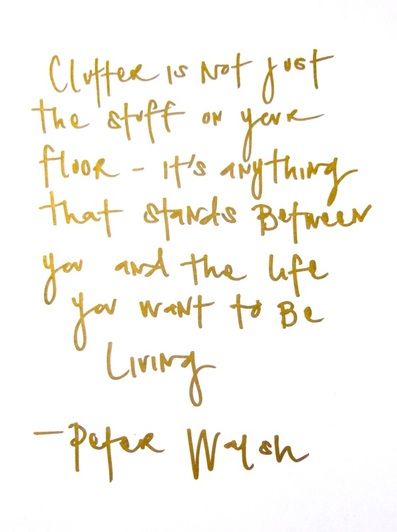 Clutter is not just
the stuff on your
floor - it's anything
that stands between
you and the life
you want to be
living
- Peter Walsh